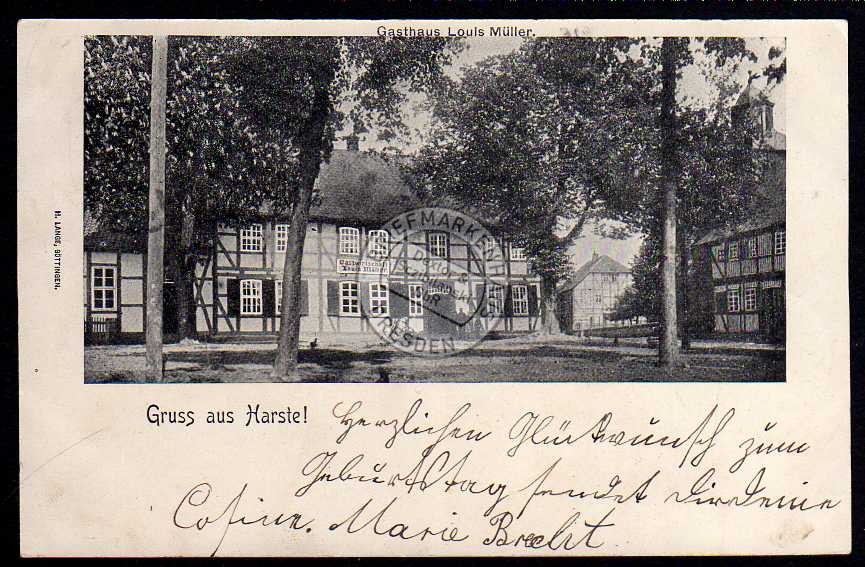 Gasthaus Louis Müller.
Gastwirtschaft
Louis Müller
BRIEFMARKENHAUS
DRESDEN
H. LANGE, GÖTTINGEN.
Gruss aus Harste!
Herzlichen Glückwunsch zum
Geburtstag sendet Dir Deine
Cosine. Marie Brecht.